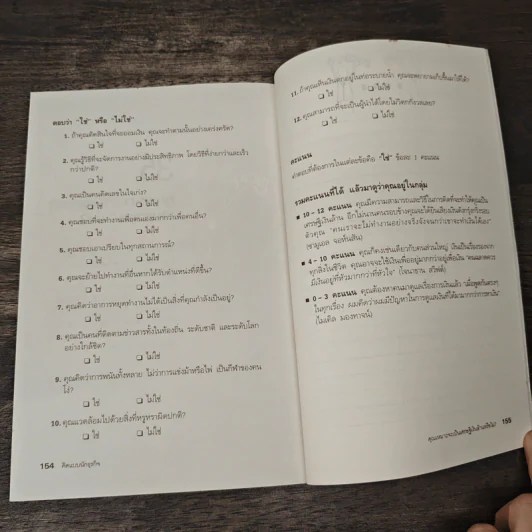 ตอบว่า "ใช่" หรือ "ไม่ใช่"
1. ถ้าคุณตัดสินใจที่จะออมเงิน คุณจะทำตามนั้นอย่างเคร่งครัด?
❑ ใช่ ❑ ไม่ใช่
2. คุณรู้วิธีที่จะจัดการงานอย่างมีประสิทธิภาพ โดยวิธีที่ง่ายกว่าและเร็ว
กว่าปกติ?
❑ ใช่ ❑ ไม่ใช่
3. คุณเป็นคนคิดเลขในใจเก่ง?
❑ ใช่ ❑ ไม่ใช่
4. คุณชอบที่จะทำงานเพื่อตนเองมากกว่าเพื่อคนอื่น?
❑ ใช่ ❑ ไม่ใช่
5. คุณชอบเอาเปรียบในทุกสถานการณ์?
❑ ใช่ ❑ ไม่ใช่
6. คุณจะย้ายไปทำงานที่อื่นหากได้รับตำแหน่งที่ดีขึ้น?
❑ ใช่ ❑ ไม่ใช่
7. คุณคิดว่าอาการหยุดทำงานไม่ได้เป็นสิ่งที่คุณกำลังเป็นอยู่?
❑ ใช่ ❑ ไม่ใช่
8. คุณเป็นคนที่ติดตามข่าวสารทั้งในท้องถิ่น ระดับชาติ และระดับโลก
อย่างใกล้ชิด?
❑ ใช่ ❑ ไม่ใช่
9. คุณคิดว่าการพนันทั้งหลาย ไม่ว่าการแข่งม้าหรือไพ่ เป็นกีฬาของคน
โง่?
❑ ใช่ ❑ ไม่ใช่
10. คุณแวดล้อมไปด้วยสิ่งที่หรูหราผิดปกติ?
❑ ใช่ ❑ ไม่ใช่
154 คิดแบบนักธุรกิจ
11. ถ้าคุณเห็นเงินตกอยู่ในท่อระบายน้ำ คุณจะพยายามเก็บขึ้นมาให้ได้?
❑ ใช่ ❑ ไม่ใช่
12. คุณสามารถที่จะเป็นผู้นำได้โดยไม่วิตกกังวลเลย?
❑ ใช่ ❑ ไม่ใช่
คะแนน
คำตอบที่ต้องการในแต่ละข้อคือ "ใช่" ข้อละ 1 คะแนน
รวมคะแนนที่ได้ แล้วมาดูว่าคุณอยู่ในกลุ่ม
■ 10 – 12 คะแนน คุณมีความสามารถและวิธีในการคิดที่จะทำให้คุณเป็น
เศรษฐีเงินล้าน อีกไม่นานคนรอบข้างคุณจะได้ยินเสียงเงินดังกรุ๊งกริ๊งรอบ
ตัวคุณ "คนเราจะไม่ทำงานอย่างจริงจังจนกว่าเขาจะทำเงินได้เลย"
(ซามูเอล จอห์นสัน)
■ 4 – 10 คะแนน คุณก็คงเช่นเดียวกับคนส่วนใหญ่ เงินเป็นเรื่องรองจาก
ทุกสิ่งในชีวิต คุณอาจจะใช้เงินเพื่ออยู่มากกว่าอยู่เพื่อเงิน "คนฉลาดควร
มีเงินอยู่ที่หัวมากกว่าที่หัวใจ" (โจนาธาน สวิฟต์)
■ 0 – 3 คะแนน คุณต้องหาคนมาดูแลเรื่องการเงินแล้ว "เมื่อพูดกันตรงๆ
ในทุกเรื่อง ผมคิดว่าผมมีปัญหาในการดูแลเงินที่ได้มามากกว่าการหาเงิน"
(ไมเคิล มองทาจน์)
คุณเหมาะจะเป็นเศรษฐีเงินล้านหรือไม่? 155